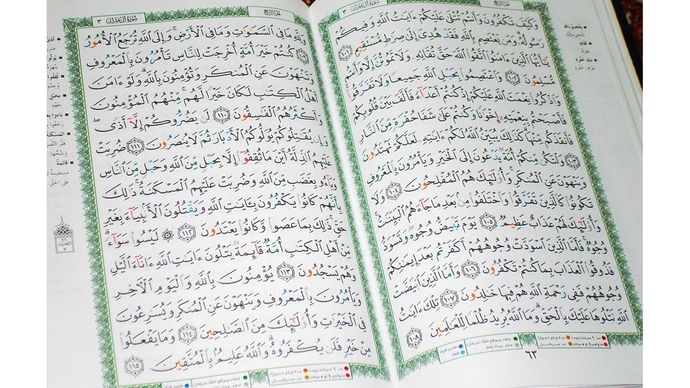 الجزء الرابع
سورة آل عمران ٣
وَكَيْفَ تَكْفُرُونَ وَأَنتُمْ تُتْلَىٰ عَلَيْكُمْ ءَايَٰتُ ٱللَّهِ وَفِيكُمْ
رَسُولُهُۥ وَمَن يَعْتَصِم بِٱللَّهِ فَقَدْ هُدِىَ إِلَىٰ صِرَٰطٍ مُّسْتَقِيمٍ
١٠١ يَٰٓأَيُّهَا ٱلَّذِينَ ءَامَنُوا۟ ٱتَّقُوا۟ ٱللَّهَ حَقَّ تُقَاتِهِۦ وَلَا تَمُوتُنَّ إِلَّا وَأَنتُم
مُّسْلِمُونَ ١٠٢ وَٱعْتَصِمُوا۟ بِحَبْلِ ٱللَّهِ جَمِيعًا وَلَا تَفَرَّقُوا۟
وَٱذْكُرُوا۟ نِعْمَتَ ٱللَّهِ عَلَيْكُمْ إِذْ كُنتُمْ أَعْدَآءً فَأَلَّفَ بَيْنَ قُلُوبِكُمْ
فَأَصْبَحْتُم بِنِعْمَتِهِۦٓ إِخْوَٰنًا وَكُنتُمْ عَلَىٰ شَفَا حُفْرَةٍ مِّنَ ٱلنَّارِ
فَأَنقَذَكُم مِّنْهَا كَذَٰلِكَ يُبَيِّنُ ٱللَّهُ لَكُمْ ءَايَٰتِهِۦ لَعَلَّكُمْ تَهْتَدُونَ
١٠٣ وَلْتَكُن مِّنكُمْ أُمَّةٌ يَدْعُونَ إِلَى ٱلْخَيْرِ وَيَأْمُرُونَ بِٱلْمَعْرُوفِ
وَيَنْهَوْنَ عَنِ ٱلْمُنكَرِ وَأُو۟لَٰٓئِكَ هُمُ ٱلْمُفْلِحُونَ ١٠٤ وَلَا
تَكُونُوا۟ كَٱلَّذِينَ تَفَرَّقُوا۟ وَٱخْتَلَفُوا۟ مِنۢ بَعْدِ مَا جَآءَهُمُ ٱلْبَيِّنَٰتُ
وَأُو۟لَٰٓئِكَ لَهُمْ عَذَابٌ عَظِيمٌ ١٠٥ يَوْمَ تَبْيَضُّ وُجُوهٌ وَتَسْوَدُّ
وُجُوهٌ فَأَمَّا ٱلَّذِينَ ٱسْوَدَّتْ وُجُوهُهُمْ أَكَفَرْتُم بَعْدَ إِيمَٰنِكُمْ
فَذُوقُوا۟ ٱلْعَذَابَ بِمَا كُنتُمْ تَكْفُرُونَ ١٠٦ وَأَمَّا ٱلَّذِينَ ٱبْيَضَّتْ
وُجُوهُهُمْ فَفِى رَحْمَةِ ٱللَّهِ هُمْ فِيهَا خَٰلِدُونَ ١٠٧ تِلْكَ ءَايَٰتُ
ٱللَّهِ نَتْلُوهَا عَلَيْكَ بِٱلْحَقِّ وَمَا ٱللَّهُ يُرِيدُ ظُلْمًا لِّلْعَٰلَمِينَ ١٠٨
٦٣
الجزء الرابع
سورة آل عمران ٣
وَلِلَّهِ مَا فِى ٱلسَّمَٰوَٰتِ وَمَا فِى ٱلْأَرْضِ وَإِلَى ٱللَّهِ تُرْجَعُ ٱلْأُمُورُ
١٠٩ كُنتُمْ خَيْرَ أُمَّةٍ أُخْرِجَتْ لِلنَّاسِ تَأْمُرُونَ بِٱلْمَعْرُوفِ
وَتَنْهَوْنَ عَنِ ٱلْمُنكَرِ وَتُؤْمِنُونَ بِٱللَّهِ وَلَوْ ءَامَنَ
أَهْلُ ٱلْكِتَٰبِ لَكَانَ خَيْرًا لَّهُم مِّنْهُمُ ٱلْمُؤْمِنُونَ
وَأَكْثَرُهُمُ ٱلْفَٰسِقُونَ ١١٠ لَن يَضُرُّوكُمْ إِلَّآ أَذًى
وَإِن يُقَٰتِلُوكُمْ يُوَلُّوكُمُ ٱلْأَدْبَارَ ثُمَّ لَا يُنصَرُونَ ١١١ ضُرِبَتْ
عَلَيْهِمُ ٱلذِّلَّةُ أَيْنَ مَا ثُقِفُوٓا۟ إِلَّا بِحَبْلٍ مِّنَ ٱللَّهِ وَحَبْلٍ مِّنَ ٱلنَّاسِ
وَبَآءُو بِغَضَبٍ مِّنَ ٱللَّهِ وَضُرِبَتْ عَلَيْهِمُ ٱلْمَسْكَنَةُ ذَٰلِكَ
بِأَنَّهُمْ كَانُوا۟ يَكْفُرُونَ بِـَٔايَٰتِ ٱللَّهِ وَيَقْتُلُونَ ٱلْأَنۢبِيَآءَ بِغَيْرِ
حَقٍّ ذَٰلِكَ بِمَا عَصَوا۟ وَّكَانُوا۟ يَعْتَدُونَ ١١٢ لَيْسُوا۟ سَوَآءً
مِّنْ أَهْلِ ٱلْكِتَٰبِ أُمَّةٌ قَآئِمَةٌ يَتْلُونَ ءَايَٰتِ ٱللَّهِ ءَانَآءَ ٱلَّيْلِ
وَهُمْ يَسْجُدُونَ ١١٣ يُؤْمِنُونَ بِٱللَّهِ وَٱلْيَوْمِ ٱلْءَاخِرِ
وَيَأْمُرُونَ بِٱلْمَعْرُوفِ وَيَنْهَوْنَ عَنِ ٱلْمُنكَرِ وَيُسَٰرِعُونَ
فِى ٱلْخَيْرَٰتِ وَأُو۟لَٰٓئِكَ مِنَ ٱلصَّٰلِحِينَ ١١٤ وَمَا يَفْعَلُوا۟
مِنْ خَيْرٍ فَلَن يُكْفَرُوهُ وَٱللَّهُ عَلِيمٌۢ بِٱلْمُتَّقِينَ ١١٥